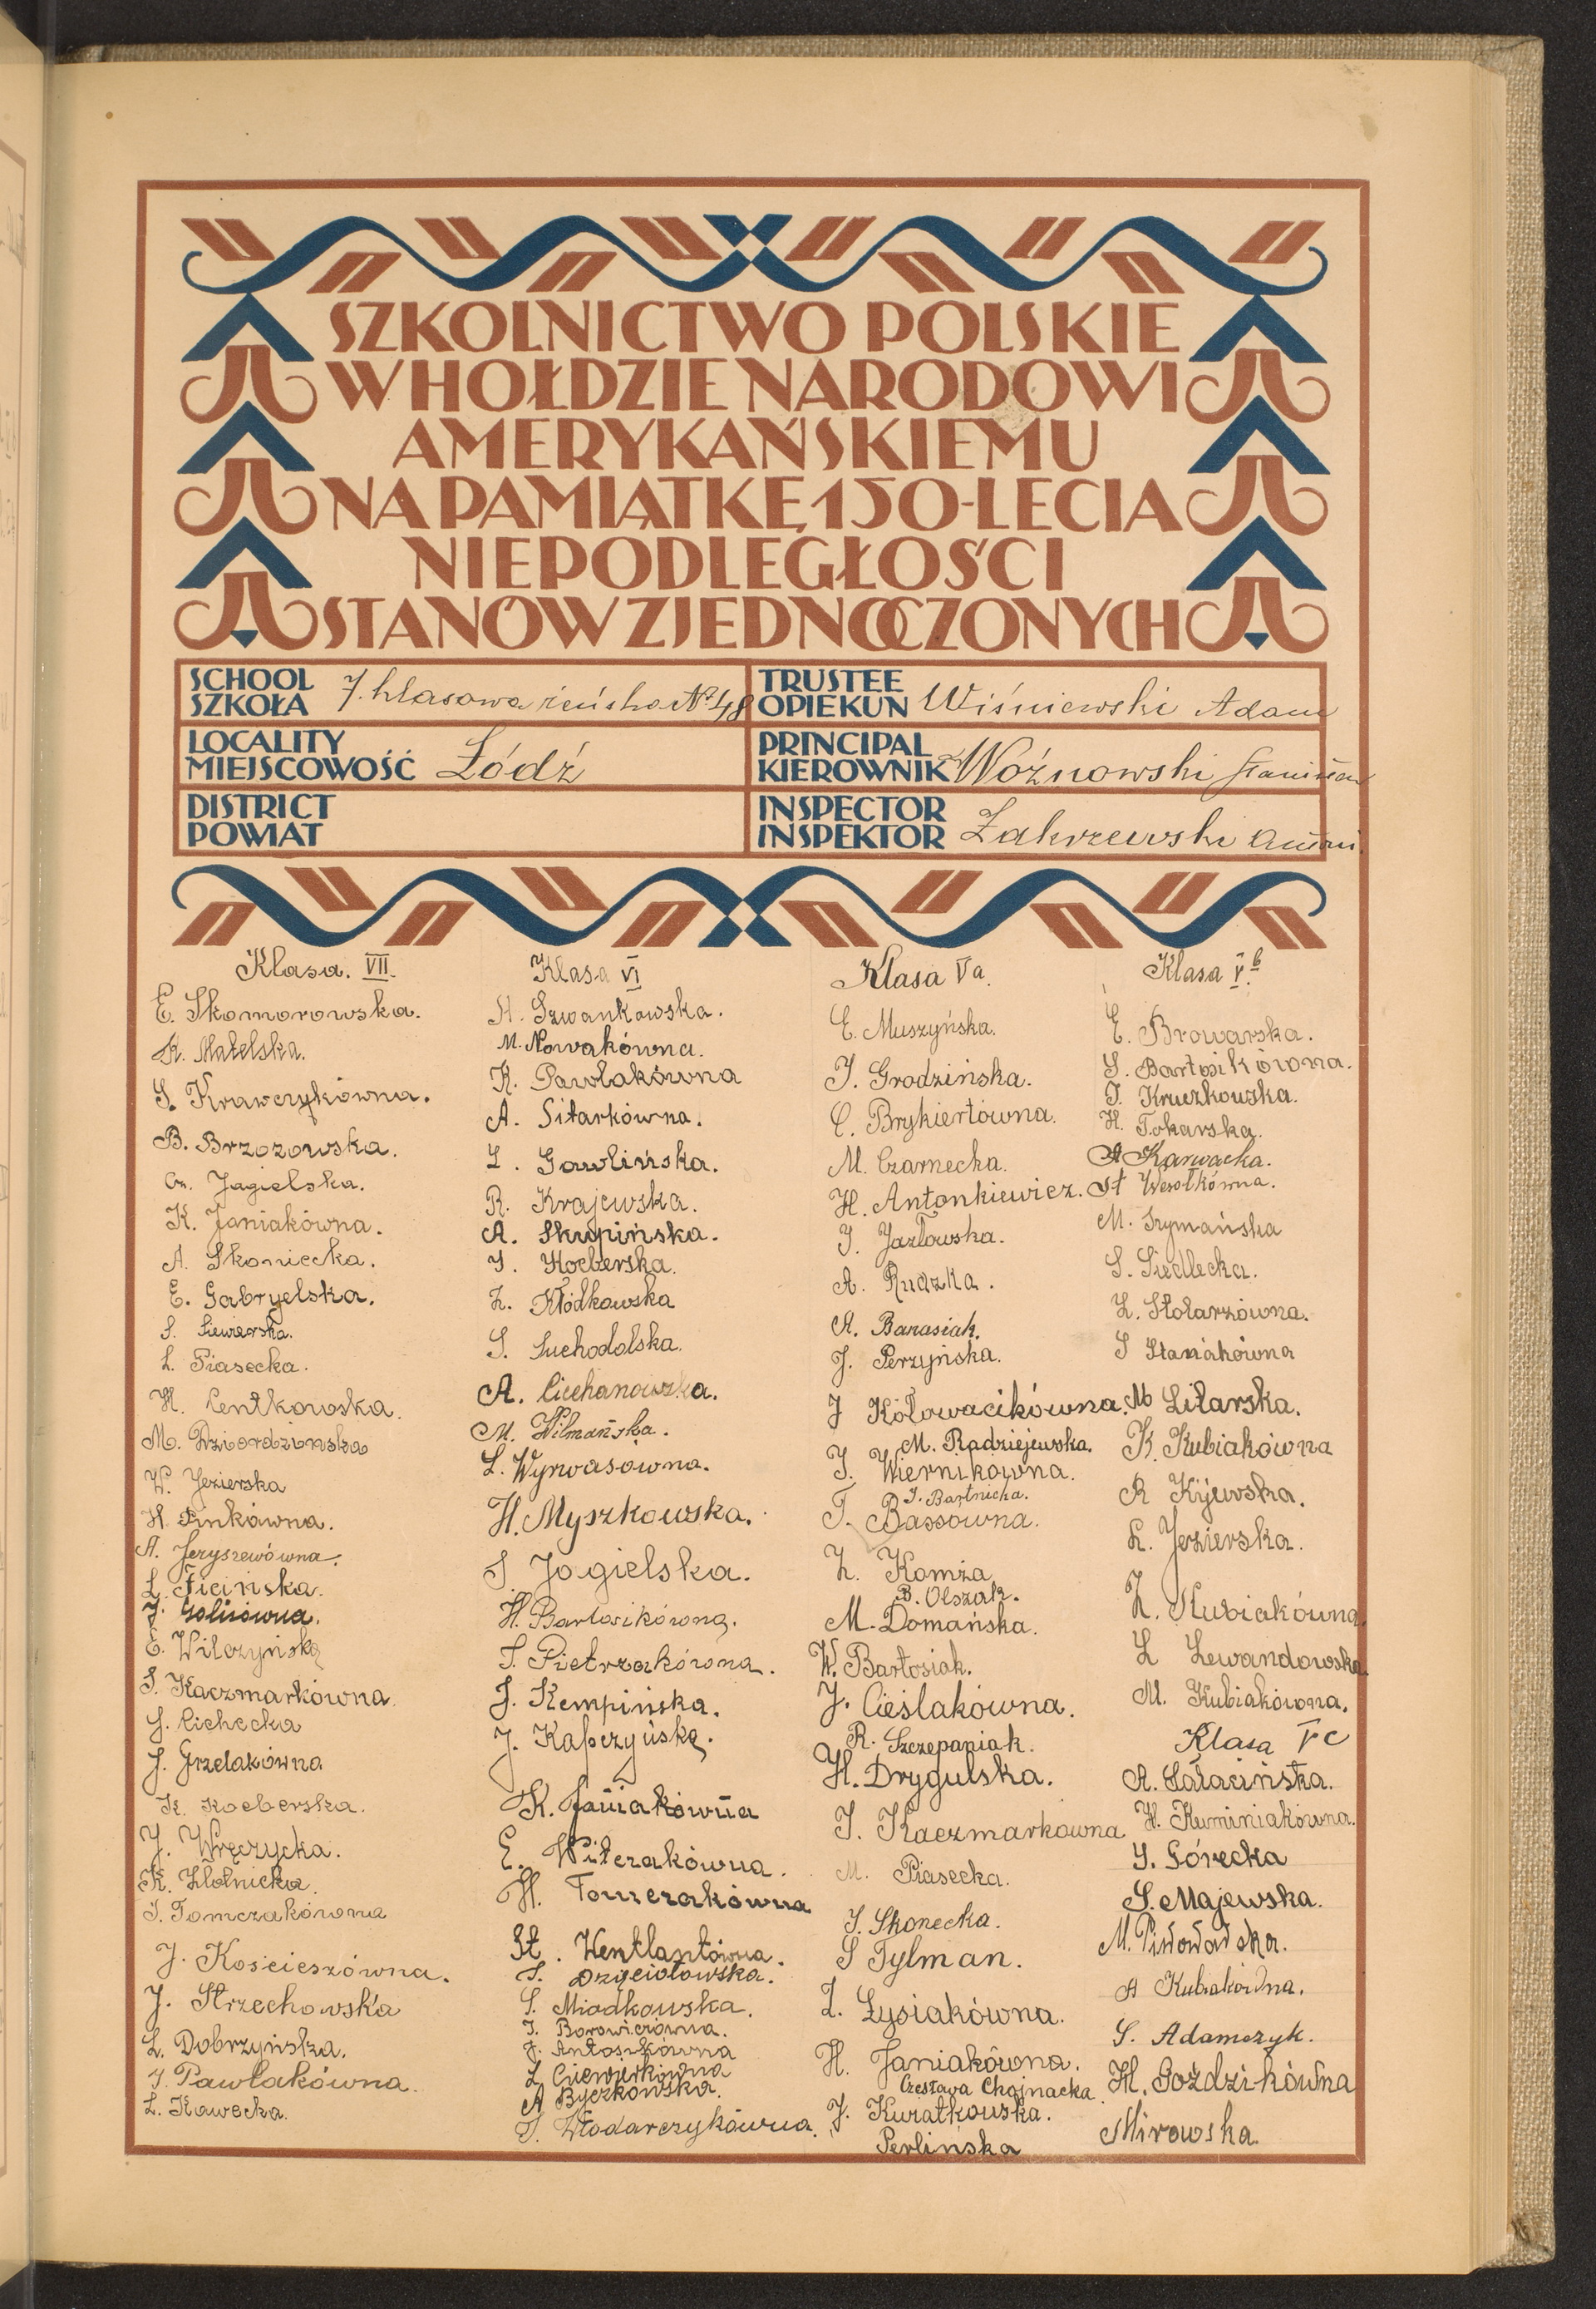 SZKOLNICTWO POLSKIE
W HOŁDZIE NARODOWI
AMERYKAŃSKIEMU
NA PAMIĄTKĘ 150-LECIA
NIEPODLEGŁOŚCI
STANÓW ZJEDNOCZONYCH
SCHOOL
SZKOŁA
7. klasowa żeńska № 48
TRUSTEE
OPIEKUN
Wiśniewski Adam
LOCALITY
MIEJSCOWOŚĆ
Łódź
PRINCIPAL
KIEROWNIK
Woźnowski Stanisław
DISTRICT
POWIAT
INSPECTOR
INSPEKTOR
Zakrzewski Antoni.
Klasa. VII.
E. Skomorowska.
K. Małelska.
S. Krawczykówna.
B. Brzozowska.
Cz. Jagielska.
K. Janiakówna.
A. Skoniecka.
E. Gabryelska.
S. Siewierska.
L. Piasecka.
H. Centkowska.
M. Dziordzinska
W. Jezierska
H. Pinkówna.
A. Jeryszewówna.
L. Ficińska.
J. Golisówna.
E. Wilczyńska
S. Kaczmarkówna.
J. Cichecka
J. Grzelakówna
K. Kocberska.
J. Wręczycka.
K. Złotnicka.
J. Tomczakówna
J. Kościeszówna.
J. Strzechowska
L. Dobrzyńska.
J. Pawlakówna.
L. Kawecka.
Klasa VI
St. Szwankowska.
M. Nowakówna.
K. Pawlakówna
A. Sitarkówna.
L. Gawlińska.
R. Krajewska.
A. Skupińska.
S. Kocberska.
Z. Kłódkowska
S. Suchodolska.
A. Ciechanowska.
M. Wilmańska.
L. Wyrwasówna.
H. Myszkowska.
S. Jagielska.
H. Bartosikówna.
S. Pietrzakówna.
J. Kempińska.
J. Kapczyńska.
K. Janiakówna
E. Witczakówna.
H. Tomczakówna
St. Wentlantówna.
S. Dzięciołowska.
S. Miodkowska.
J. Borowiczówna.
J. Antosikówna
L. Ćwiewierkówna
A Byczkowska.
S. Włodarczykówna.
Klasa Va.
E. Muszyńska.
J. Grodzińska.
C. Brykiertówna.
M. Czarnecka.
H. Antonkiewicz.
J. Jazłowska.
A. Rudzka.
A. Banasiak.
J. Perzyńska.
J Kołowacikówna.
M. Radziejewska.
J. Wiernikówna.
J. Bartnicka.
T. Bassówna.
Z. Komża
B. Olszak.
M. Domańska.
W. Bartosiak.
J. Cieślakówna.
R. Szczepaniak.
H. Drygulska.
J. Kaczmarkówna
M. Piasecka.
J. Skonecka.
S Tylman.
Z. Łysiakówna.
H. Janiakówna.
Czesława Chojnacka.
J. Kwiatkowska.
Perlińska
Klasa Vb.
E. Browarska.
S. Bartosikówna.
J. Kruczkowska.
H. Tokarska.
A Karwacka.
St Wesołkówna.
M. Szymańska
S. Siedlecka.
Z. Stolarzówna.
S Staniakówna
M Litarska.
K. Kubiakówna
R Kijewska.
L. Jezierska.
Z. Kubiakówna.
L Lewandowska
M. Kubiakówna.
Klasa Vc
A. Sałacińska.
H. Kuminiakówna.
J. Górecka
S. Majewska.
M. Piwowarska.
A Kubiakówna.
S. Adamczyk.
H. Goździkówna
Mirowska.